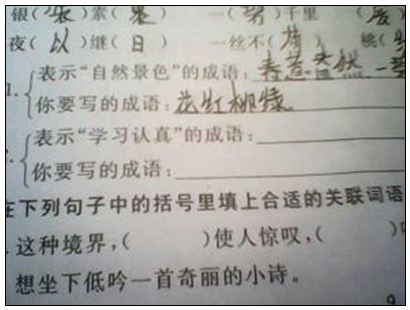 银(装)素(裹) 一(努)千里
夜(以)继(日) 一丝不(苟) 桃(
1. 表示“自然景色”的成语: 春意盎然 一碧
你要写的成语: 花红柳绿
2. 表示“学习认真”的成语:
你要写的成语:
在下列句子中的括号里填上合适的关联词语
这种境界,( )使人惊叹,( )
想坐下低吟一首奇丽的小诗。
9